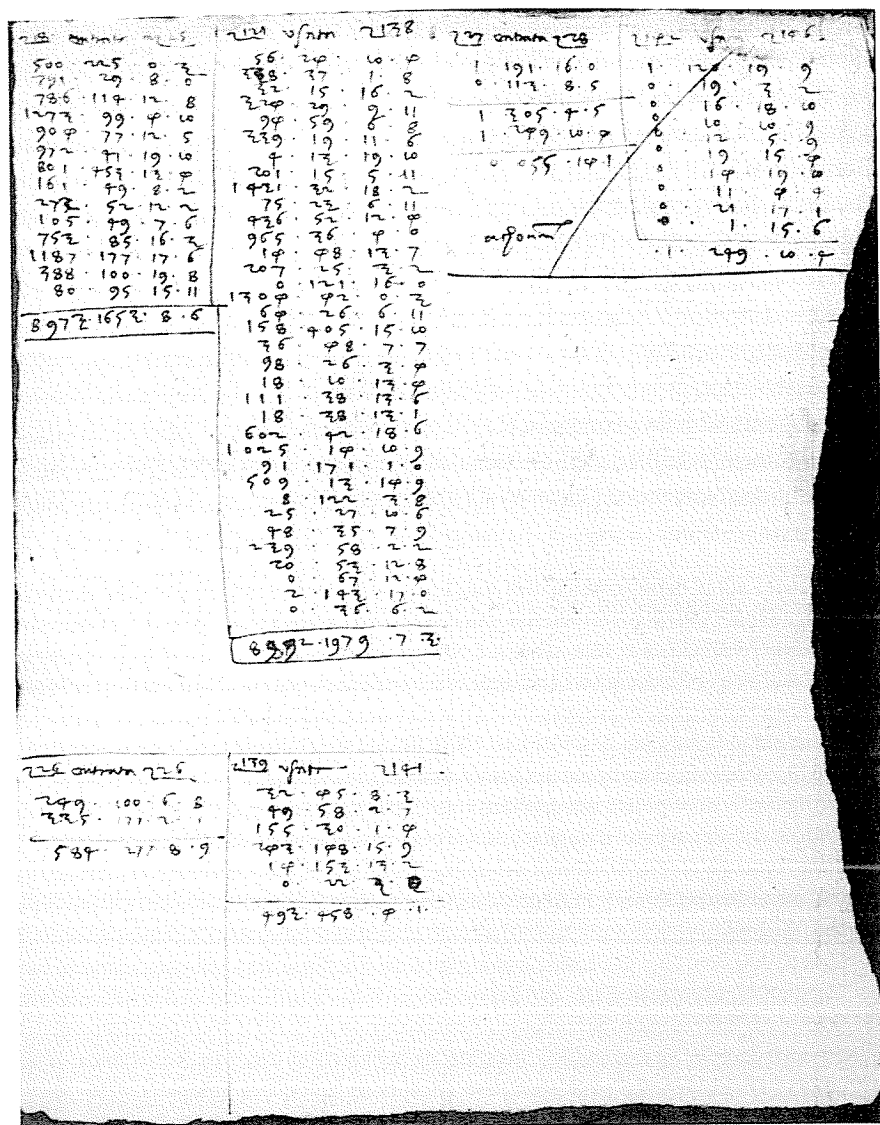 entrata
500 · 225 · 0 · 3
791 · 29 · 8 · 0
786 · 114 · 12 · 8
1273 · 99 · 4 · 10
904 · 77 · 12 · 5
972 · 41 · 19 · 10
801 · 453 · 13 · 4
161 · 49 · 8 · 2
272 · 52 · 12 · 2
105 · 49 · 7 · 6
753 · 85 · 16 · 3
1187 · 177 · 17 · 6
388 · 100 · 19 · 8
80 · 95 · 15 · 11
8973 · 1653 · 8 · 6
2121 uscita 2138
56 · 24 · 10 · 4
388 · 37 · 1 · 8
32 · 15 · 16 · 2
324 · 29 · 9 · 11
94 · 59 · 6 · 8
339 · 19 · 11 · 6
4 · 13 · 19 · 10
201 · 15 · 5 · 11
1431 · 32 · 18 · 2
75 · 23 · 6 · 11
436 · 52 · 12 · 4
965 · 36 · 4 · 0
14 · 48 · 13 · 7
207 · 25 · 3 · 2
0 · 121 · 16 · 0
1304 · 42 · 0 · 3
64 · 26 · 6 · 11
158 · 405 · 15 · 10
36 · 48 · 7 · 7
98 · 26 · 3 · 4
18 · 10 · 13 · 4
111 · 38 · 13 · 6
18 · 38 · 13 · 1
602 · 42 · 18 · 6
1025 · 14 · 10 · 9
91 · 171 · 1 · 0
509 · 13 · 14 · 9
8 · 122 · 3 · 8
25 · 27 · 10 · 6
48 · 35 · 7 · 9
239 · 58 · 2 · 2
20 · 53 · 12 · 8
0 · 67 · 12 · 4
2 · 143 · 17 · 0
0 · 36 · 6 · 2
1979 · 7 · 3
227 entrata 228
1 · 191 · 16 · 0
0 · 113 · 8 · 5
1 · 305 · 4 · 5
1 · 249 · 10 · 4
0 · 055 · 14 · 1
2142 uscita
1 · 120 · 19 · 9
0 · 19 · 3 · 2
0 · 16 · 18 · 10
0 · 10 · 10 · 9
0 · 12 · 5 · 9
0 · 19 · 15 · 4
0 · 14 · 19 · 8
0 · 11 · 4 · 4
0 · 21 · 17 · 1
0 · 1 · 15 · 6
· 1 · 249 · 10 · 4
entrata 226
249 · 100 · 6 · 8
335 · 177 · 2 · 1
584 · 277 · 8 · 9
2139 uscita 2141
32 · 45 · 8 · 3
49 · 58 · 2 · 7
155 · 30 · 1 · 4
243 · 148 · 15 · 9
14 · 153 · 13 · 2
0 · 22 · 3 · 0
493 · 458 · 4 · 1 ·